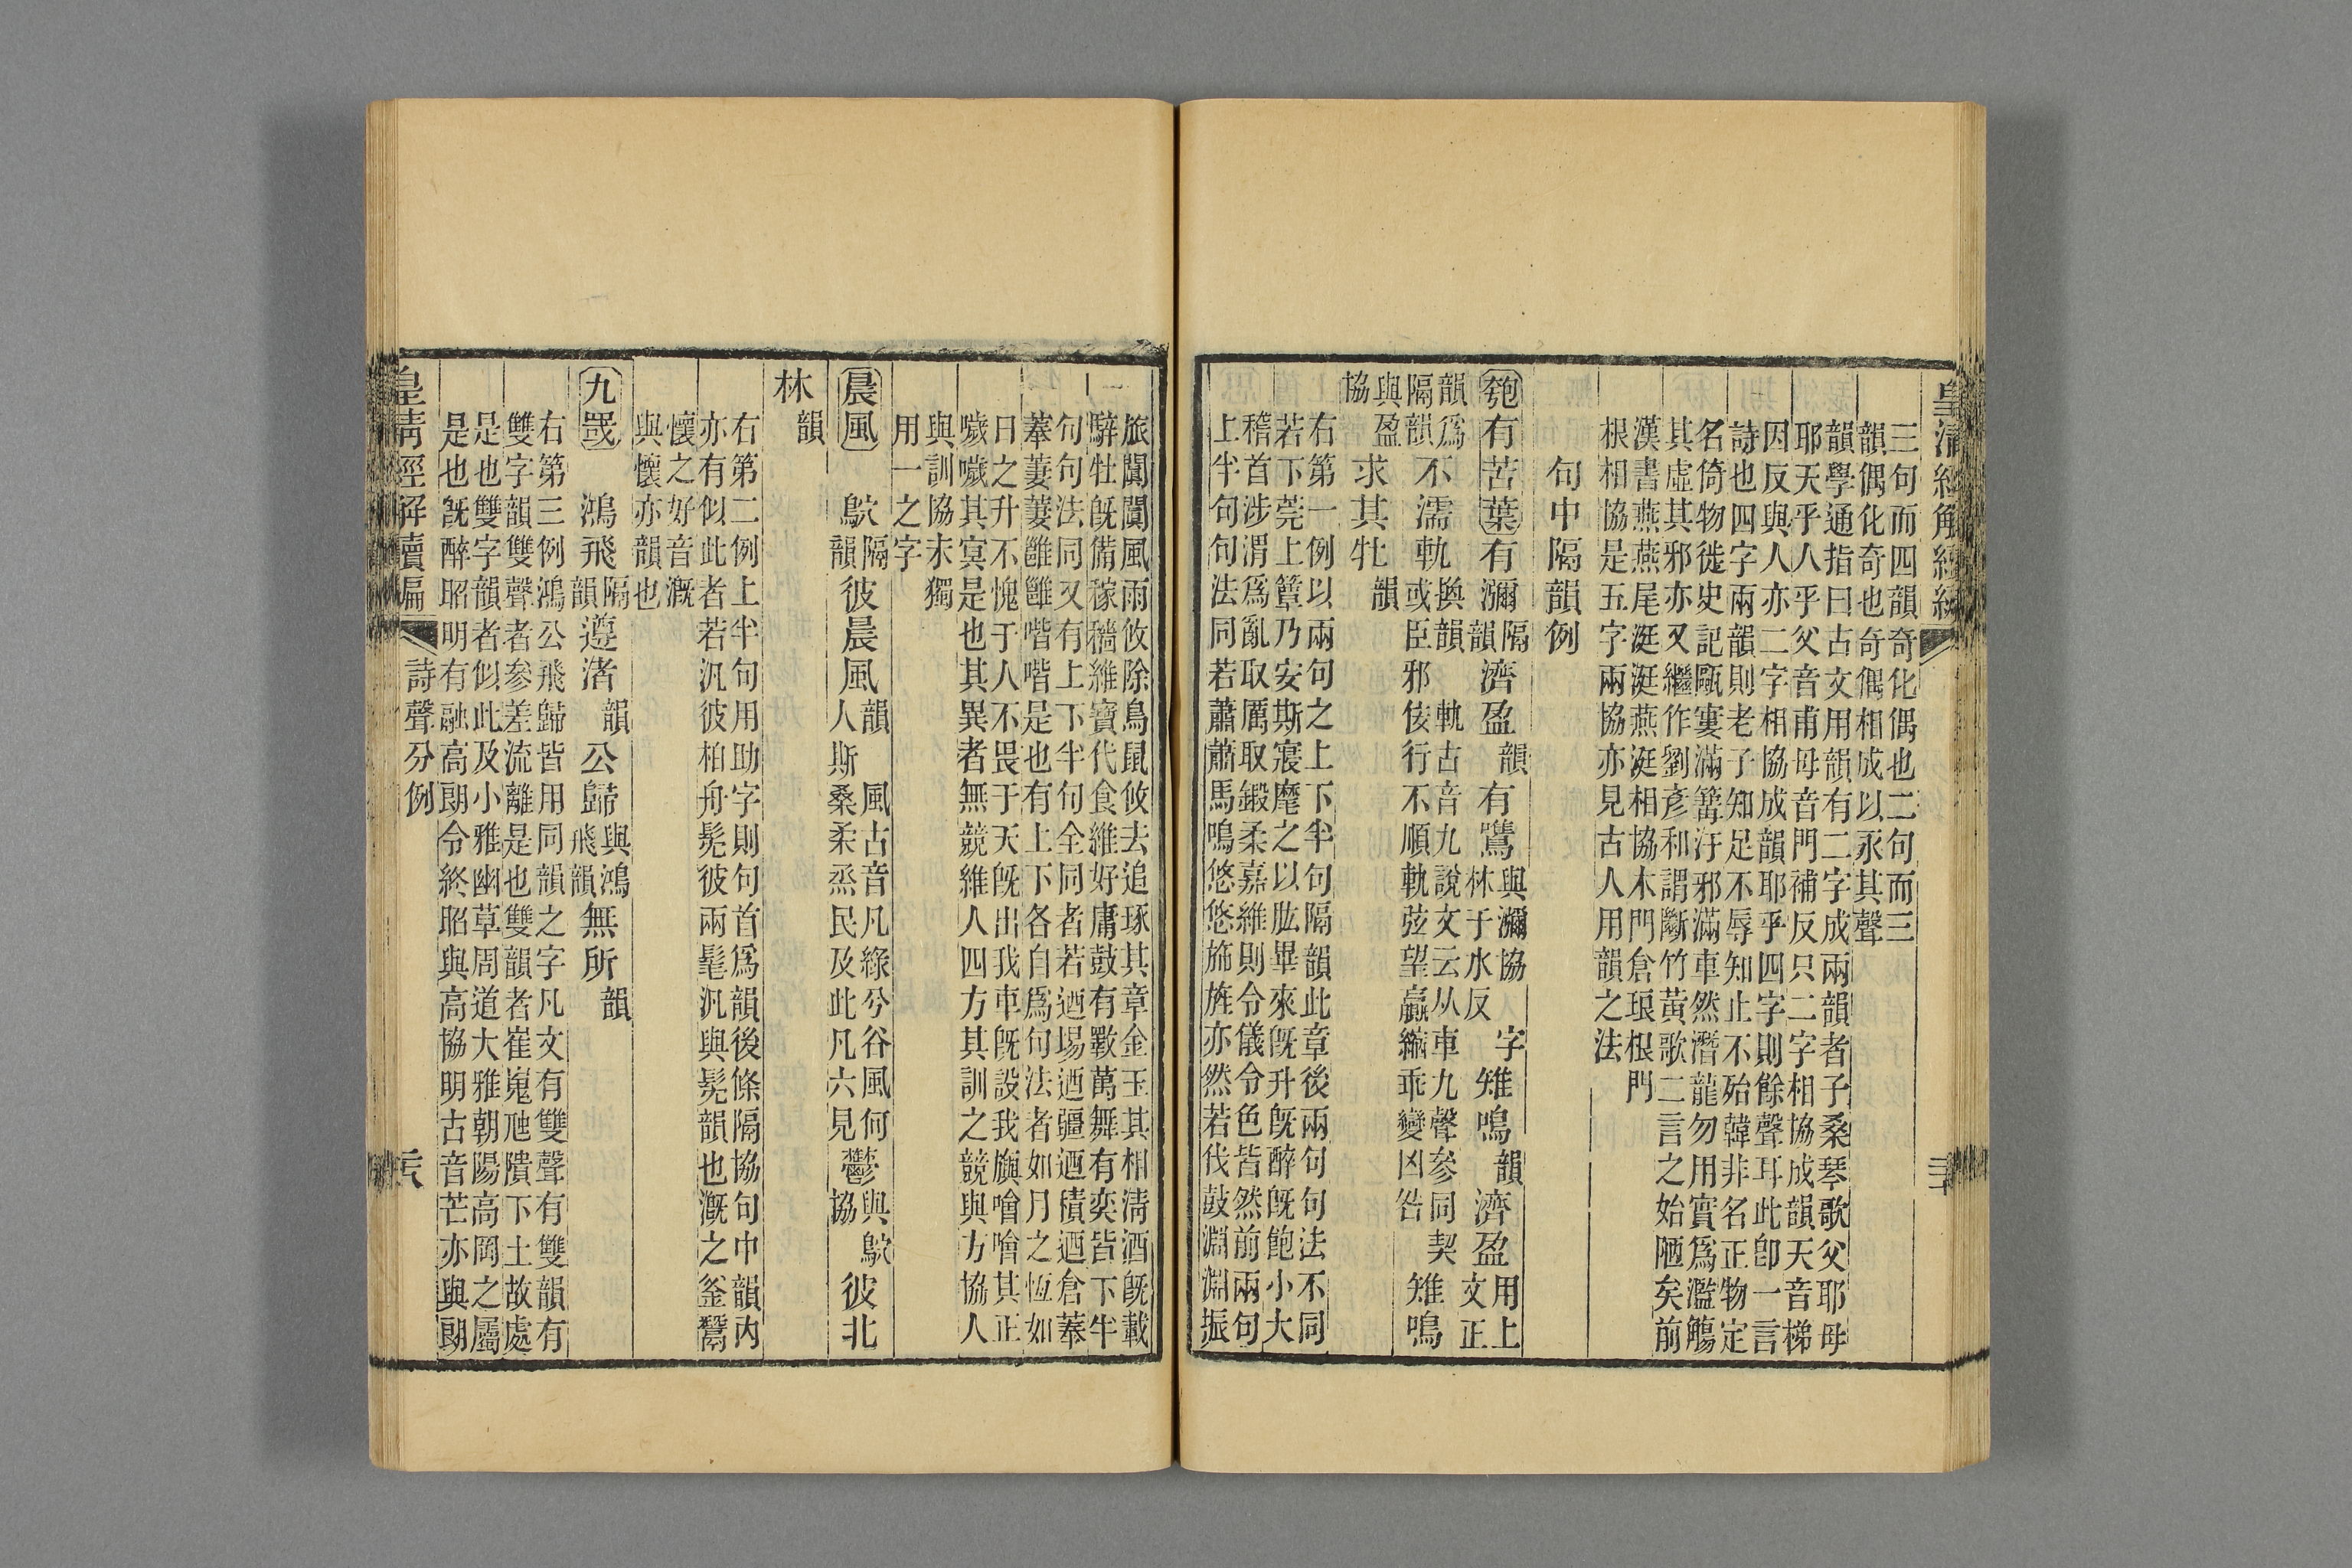 皇清經解續編
三句而四韻奇化偶也二句而三
韻偶化奇也奇偶相成以永其聲
韻學通指曰古文用韻有二字成兩韻者子桑琴歌父耶母
耶天乎人乎父音甫母音門補反只二字相協成韻天音梯
因反與人亦二字相協成韻耶乎四字則餘聲耳此卽一言
詩也四字兩韻則老子知足不辱知止不殆韓非名正物定
名倚物徙史記甌窶滿篝汙邪滿車然潛龍勿用實爲濫觴
其虛其邪亦又繼作劉彥和謂斷竹黃歌二言之始陋矣前
漢書燕燕尾涎涎燕涎相協木門倉琅根門
根相協是五字兩協亦見古人用韻之法
句中隔韻例
匏有苦葉有瀰隔韻濟盈韻有鷕與瀰協林于水反字雉鳴韻濟盈用上文正
韻爲隔韻不濡軌與韻或臣邪
軌古音九說文云从車九聲參同契
侫行不順軌弦望贏縮乖變凶咎
雉鳴
與盈協求其牡韻
右第一例以兩句之上下半句隔韻此章後兩句句法不同
若下莞上簟乃安斯寢麾之以肱畢來旣升旣醉旣飽小大
稽首涉渭爲亂取厲取鍛柔嘉維則令儀令色皆然前兩句
上半句句法同若蕭蕭馬鳴悠悠旆旌亦然若伐鼓淵淵振
旅闐闐風雨攸除鳥鼠攸去追琢其章金玉其相淸酒旣載
騂牡旣備稼穡維寶代食維好庸鼓有斁萬舞有奕皆下半
句句法同又有上下半句全同者若迺場迺疆迺積迺倉菶
菶萋萋雝雝喈喈是也有上下各自爲句法者如月之恆如
日之升不愧于人不畏于天旣出我車旣設我旟噲噲其正
噦噦其冥是也其異者無競維人四方其訓之競與方協人
與訓協末獨
用一之字
晨風鴥隔韻彼晨風韻
風古音凡綠兮谷風何
人斯桑柔烝民及此凡六見
鬱與鴥協彼北
林韻
右第二例上半句用助字則句首爲韻後條隔協句中韻內
亦有似此者若汎彼柏舟髧彼兩髦汎與髧韻也溉之釜鬵
懷之好音溉
與懷亦韻也
九罭鴻飛隔韻遵渚韻公歸與鴻飛韻無所韻
右第三例鴻公飛歸皆用同韻之字凡文有雙聲有雙韻有
雙字韻雙聲者參差流離是也雙韻者崔嵬虺隤下土故處
是也雙字韻者似此及小雅幽草周道大雅朝陽高岡之屬
是也旣醉昭明有融高朗令終昭與高協明古音芒亦與朗
皇淸經解續編
詩聲分例